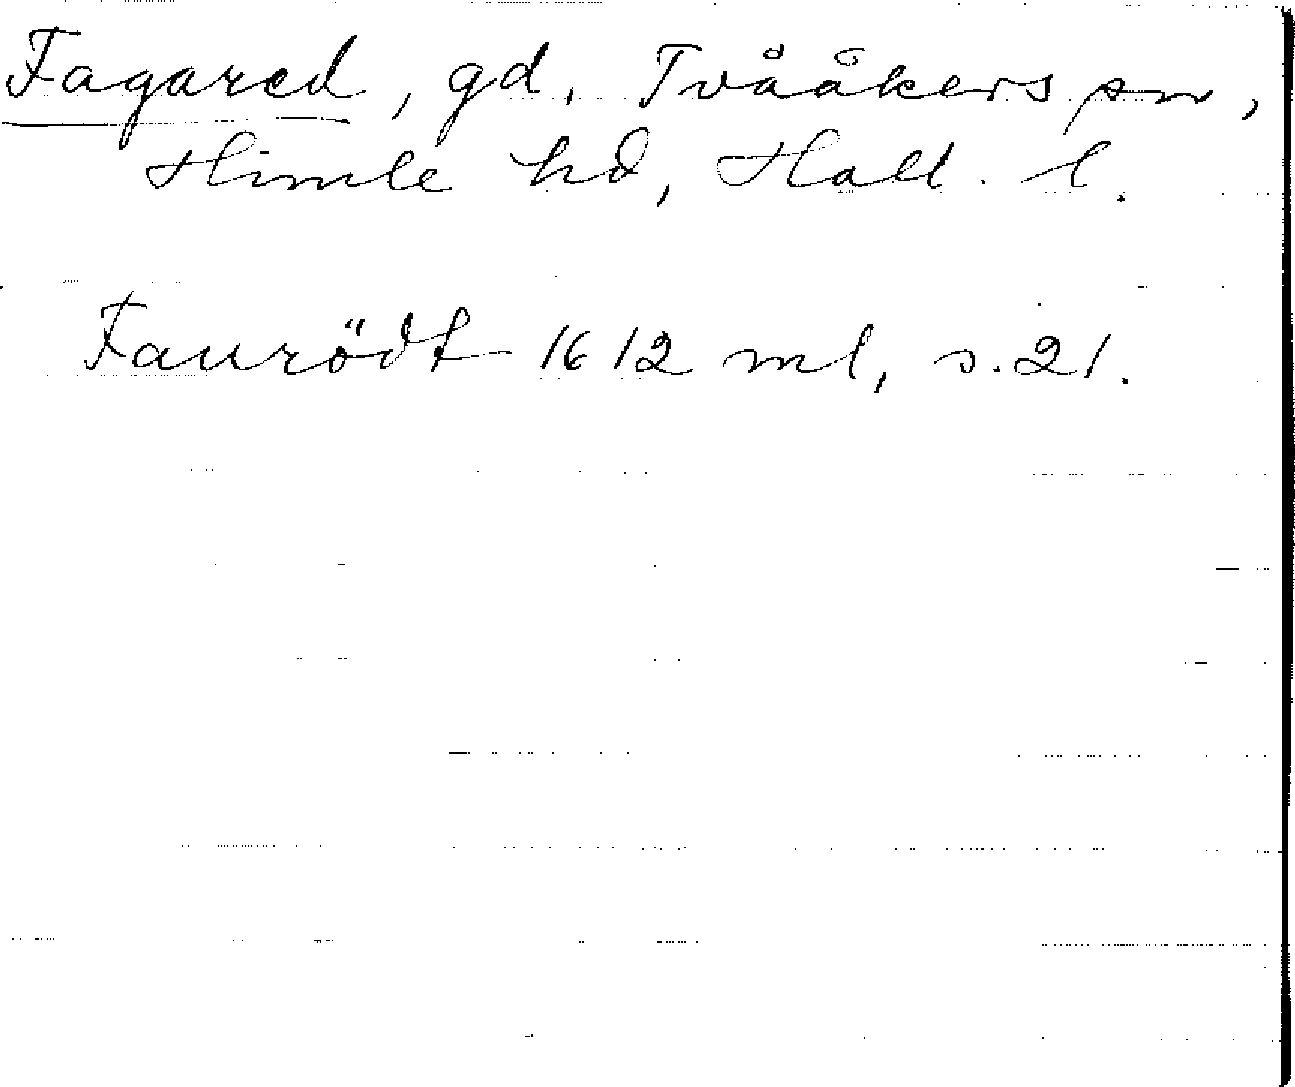 Fagared, gd, Tvååkers sn,
Himle hd, Hall. l.
Faurödt 1612 ml, s. 21.